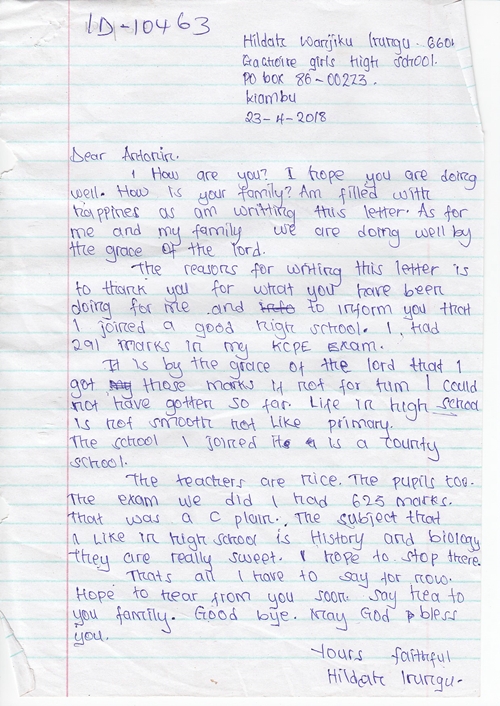 ID-10463
Hildate Wanjiku Irungu. 660
Gachoire girls High School.
PO box 86-00223.
kiambu
23-4-2018
Dear Antonin.
How are you? I hope you are doing
well. How is your family? Am filled with
happines as am writting this letter. As for
me and my family we are doing well by
the grace of the lord.
The reasons for writing this letter is
to thank you for what you have been
doing for me and to inform you that
I joined a good high school. I had
291 marks in my KCPE Exam.
It is by the grace of the lord that I
got those marks if not for him I could
not have gotten so far. Life in high school
is not smooth not like primary.
The school I joined is a county
school.
The teachers are nice. The pupils too.
The exam we did I had 625 marks.
That was a C plain. The subject that
I like in high school is History and biology
they are really sweet. I hope to stop there.
Thats all I have to say for now.
Hope to hear from you soon. say hea to
you family. Good bye. May God bless
you.
Yours faithful
Hildate Irungu.